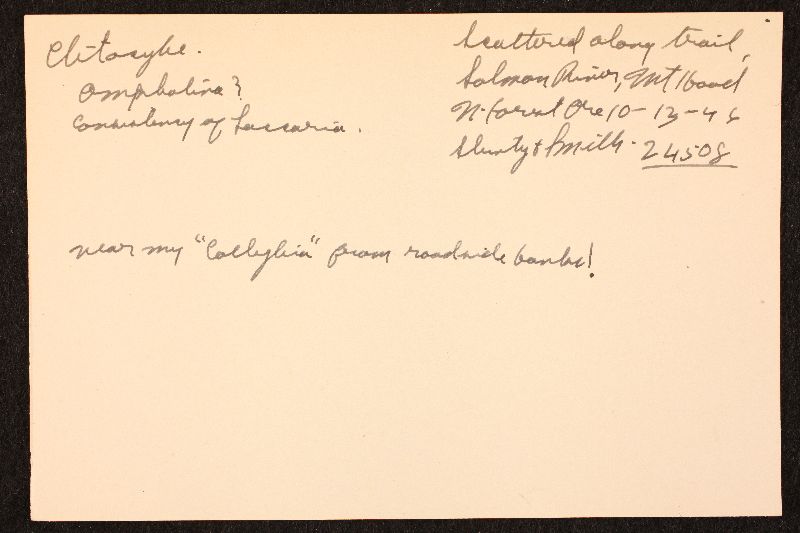 Clitocybe.
Omphalina?
consistency of Laccaria.
Scattered along trail,
Salmon River, Mt Hood
N. Forest Ore 10-13-46
& Smith. 24508
near my "Collybia" from roadside banks!